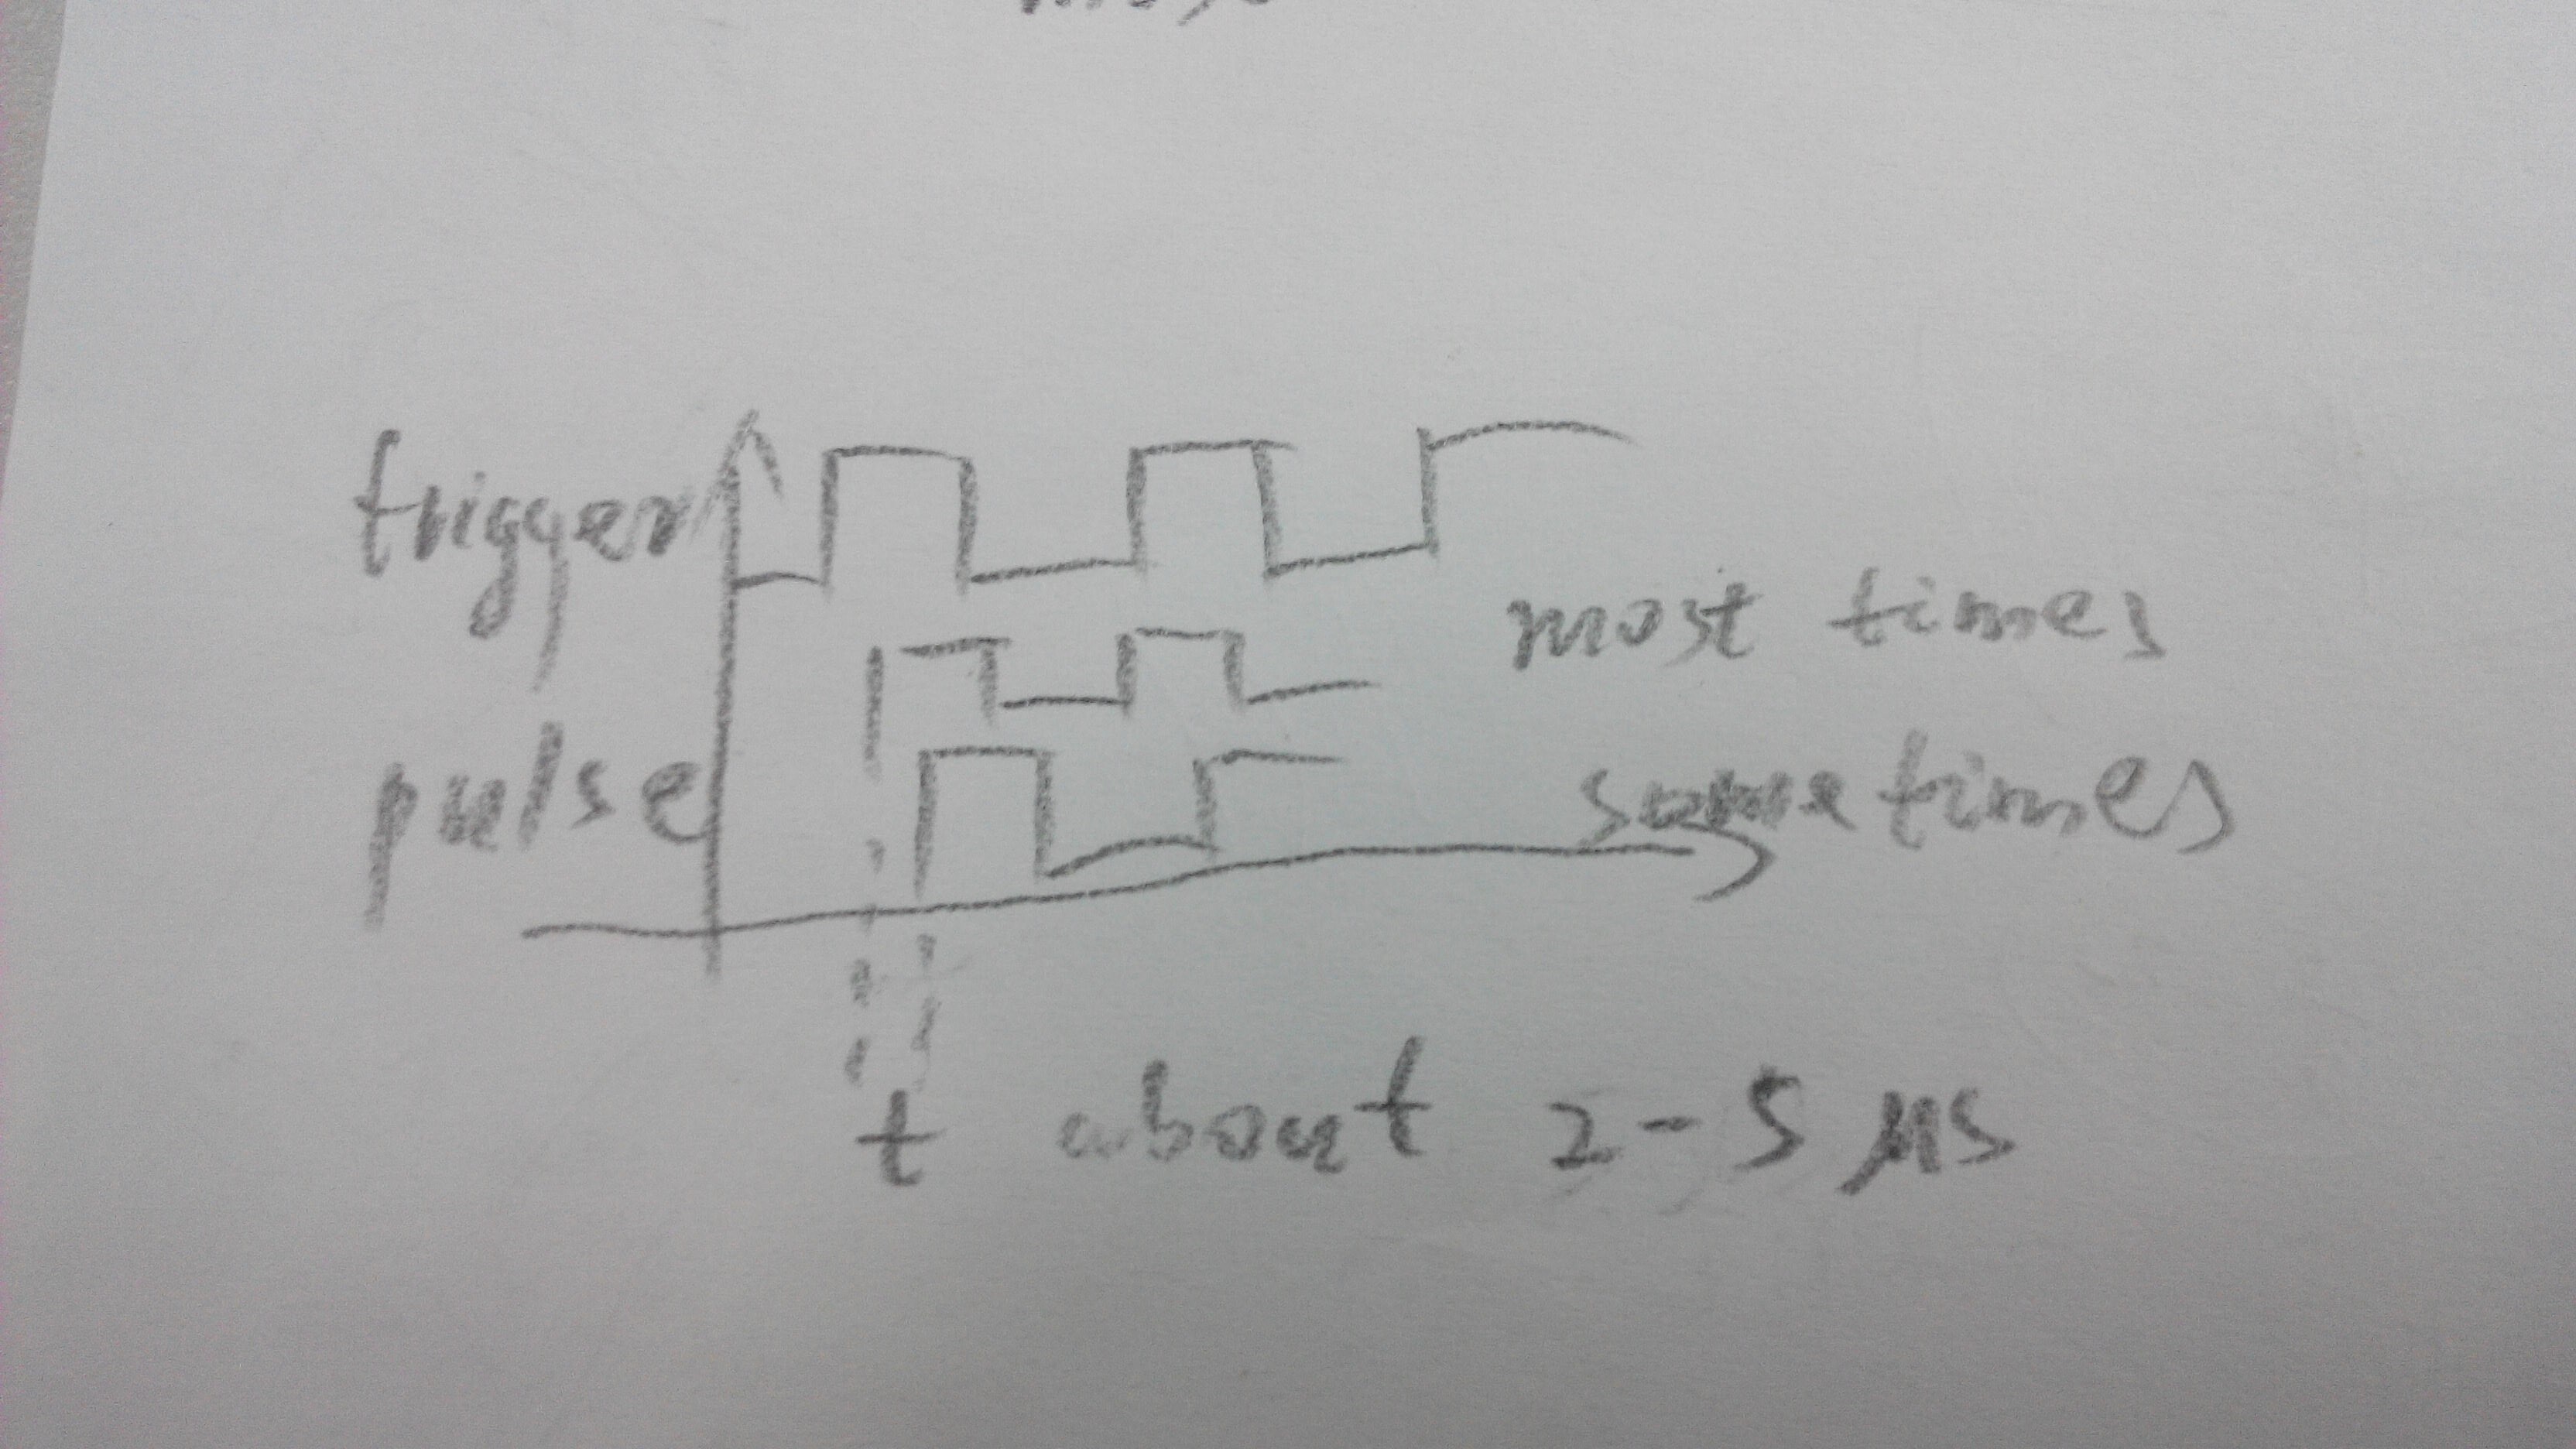 trigger
most times
pulse
sometimes
t about 2-5 μs